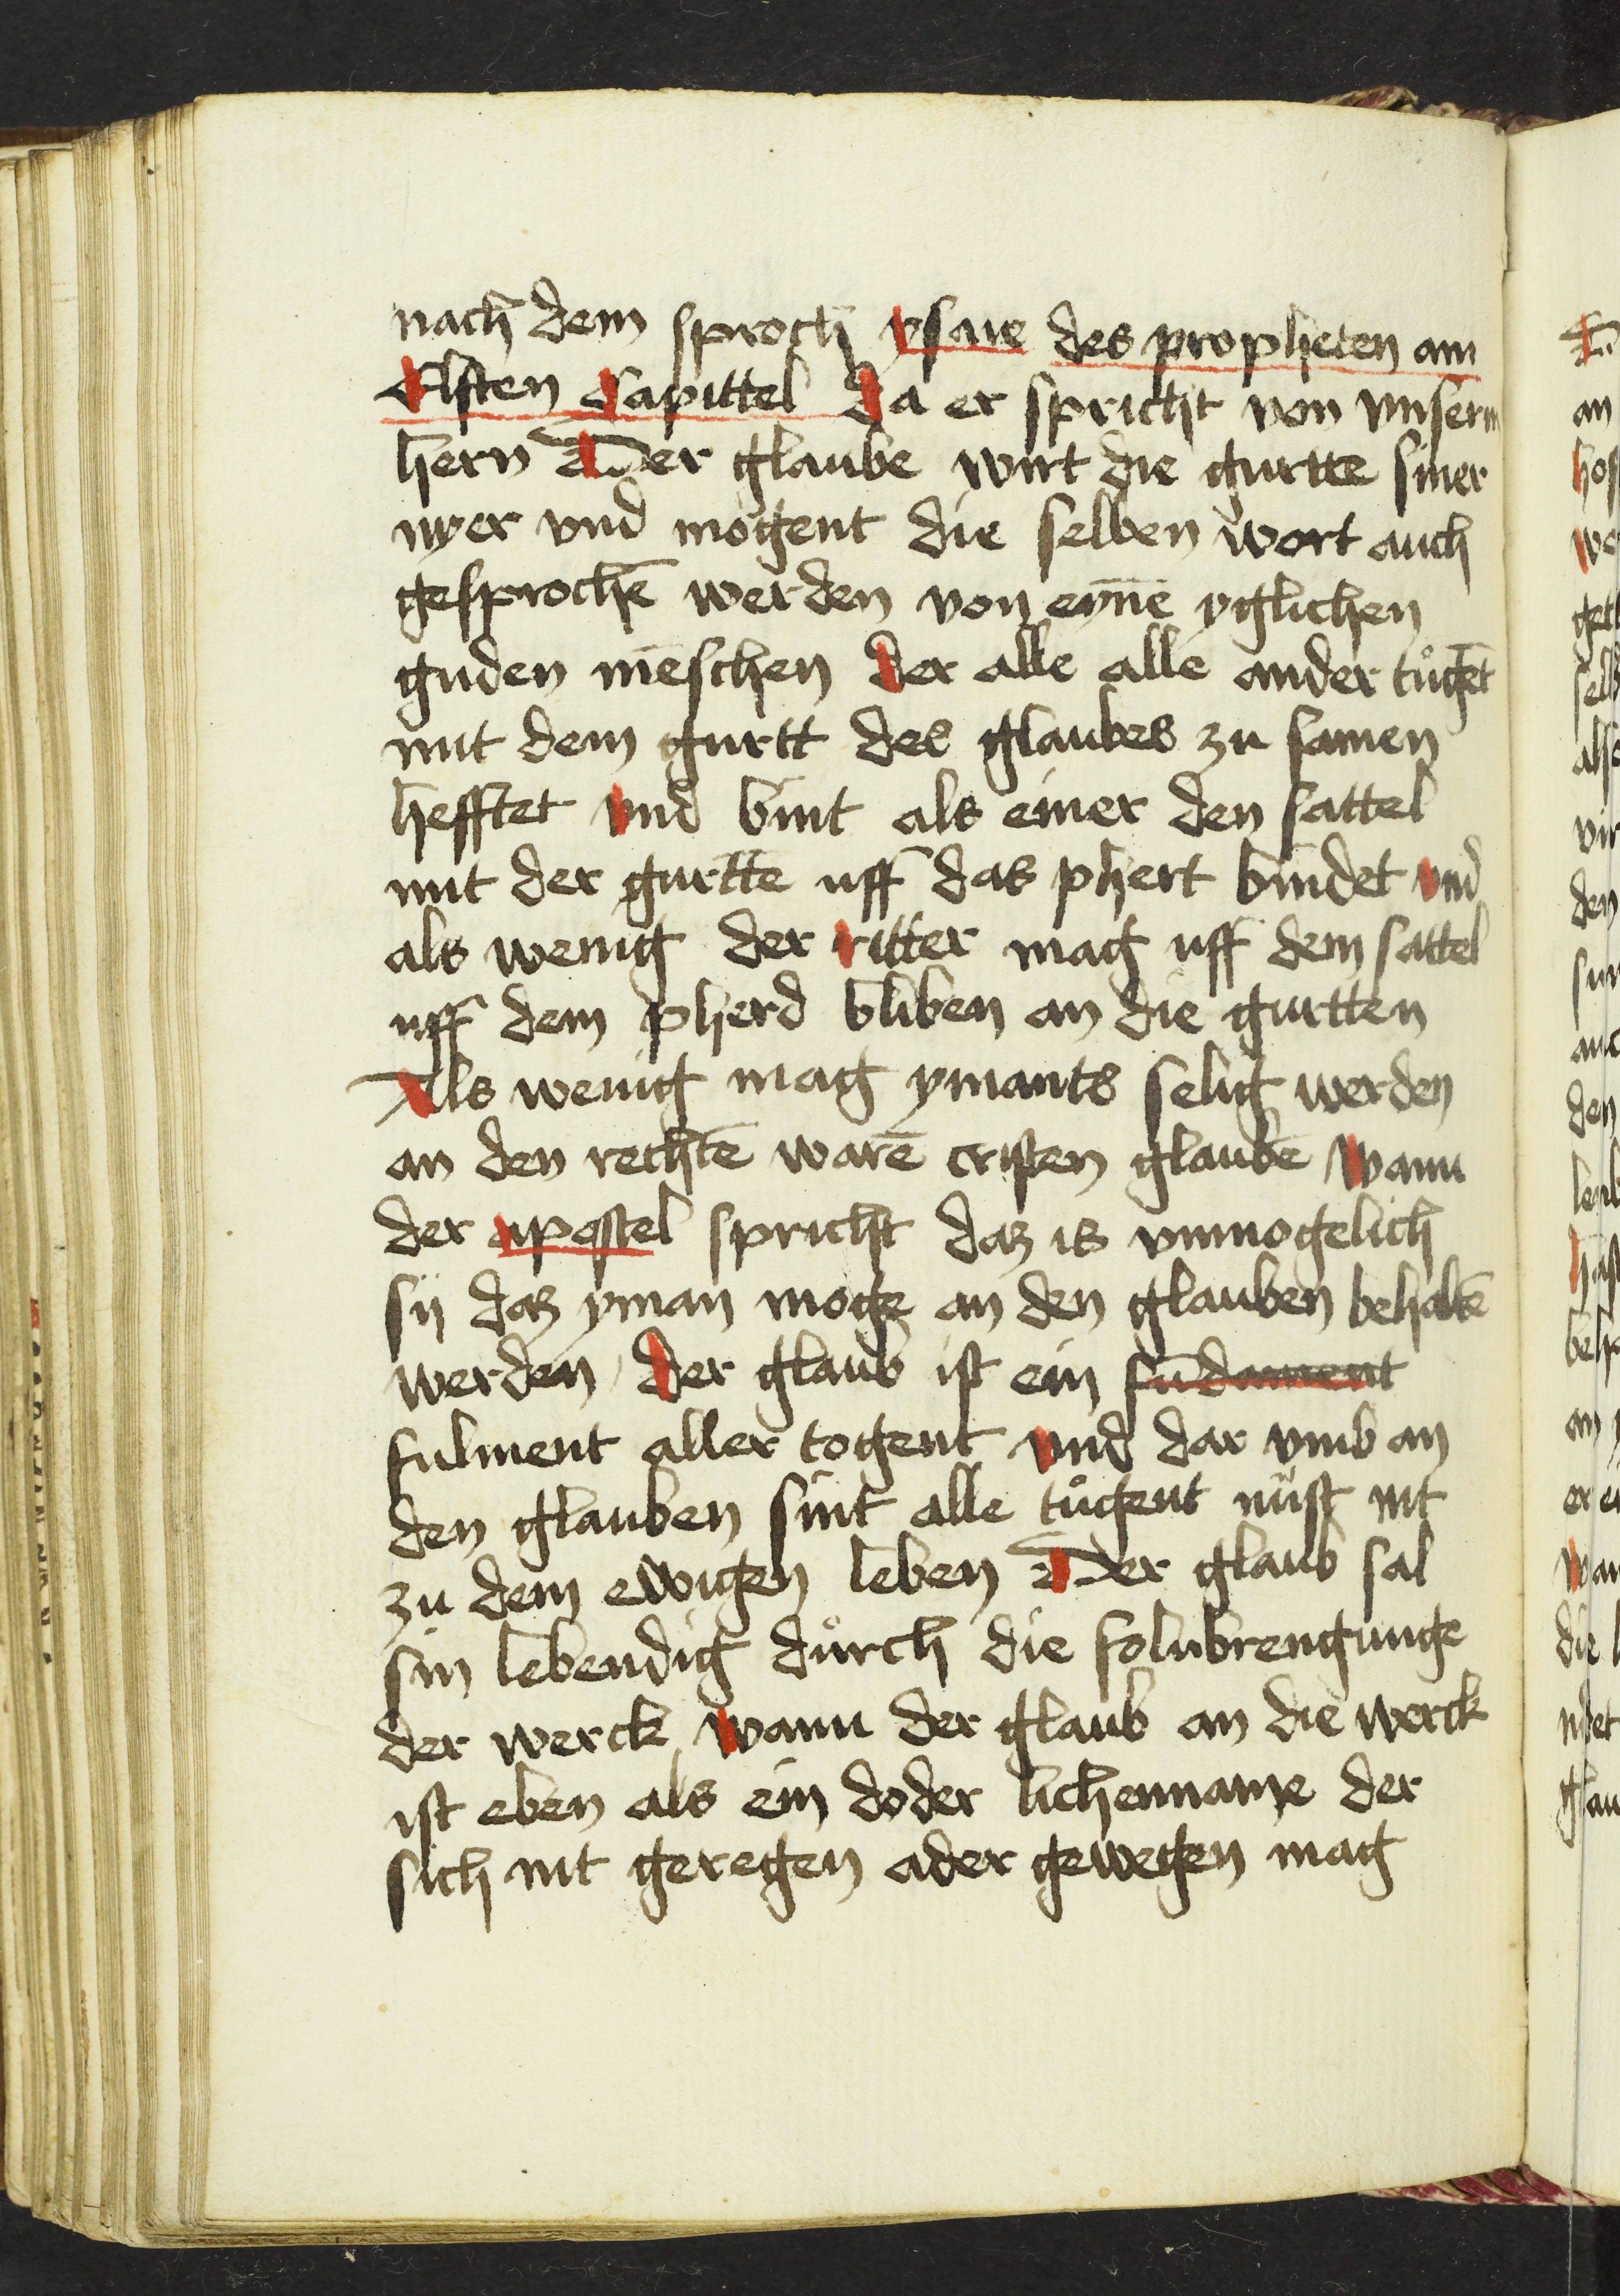 nach dem sproch ysaie des propheten am
Elften Capittel Da er spricht von vnserm
hern Der glaube wirt die gurtte siner
nyer vnd mogent die selben wort auch
gesprochē werden von eynē yglichen
guden mēschen der alle alle ander tůgēt
mit dem gurtt des glaubes zu samen
hefftet vnd bint als einer den sattel
mit der gurtte uff das phert bindet vnd
als wenig der ritter mag uff dem sattel
uff dem pherd bliben an die gurtten
Als wenig mag ymants selig werden
an den rechtē warē cristen glaubē wann
der apostel spricht daz is vnmogelich
sij daz yman moge an den glauben behaltē
werden / der glaub ist ein fūdament
fulment aller togent vnd dar vmb an
den glauben sint alle tůgent nust nit
zu dem ewigen leben Der glaub sal
sin lebendig důrch die folnbrengunge
der werck wann der glaub an die werck
ist eben als ein doder lichenname der
sich nit geregen ader gewegen mag